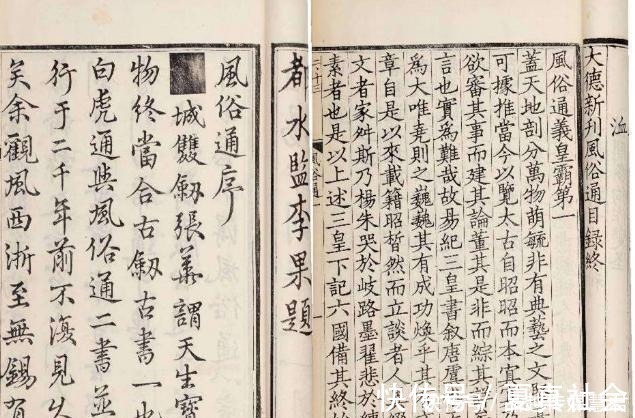 大德新刋風俗通目録終
風俗通義皇霸第一
蓋天地剖分萬物萌毓非有典藝之文堅
可據推當今以覽太古自昭昭而本冥
欲審其事而建其論董其是非而綜其
言也實為難哉故易紀三皇書叙唐虞
為大唯堯則之巍巍其有成功煥乎其
章自是以來載籍昭晳然而立談者人
文者家舛斯乃楊朱哭於岐路墨翟悲於練
素者也是以上述三皇下記六國備其終
風俗通
都水監李果題
風俗通序
城雙劔張華謂天生寳
物終當合古劔古書一也
白虎通與風俗通二書並
行于二千年前不復見久
矣余觀風西浙至無錫有
快传号